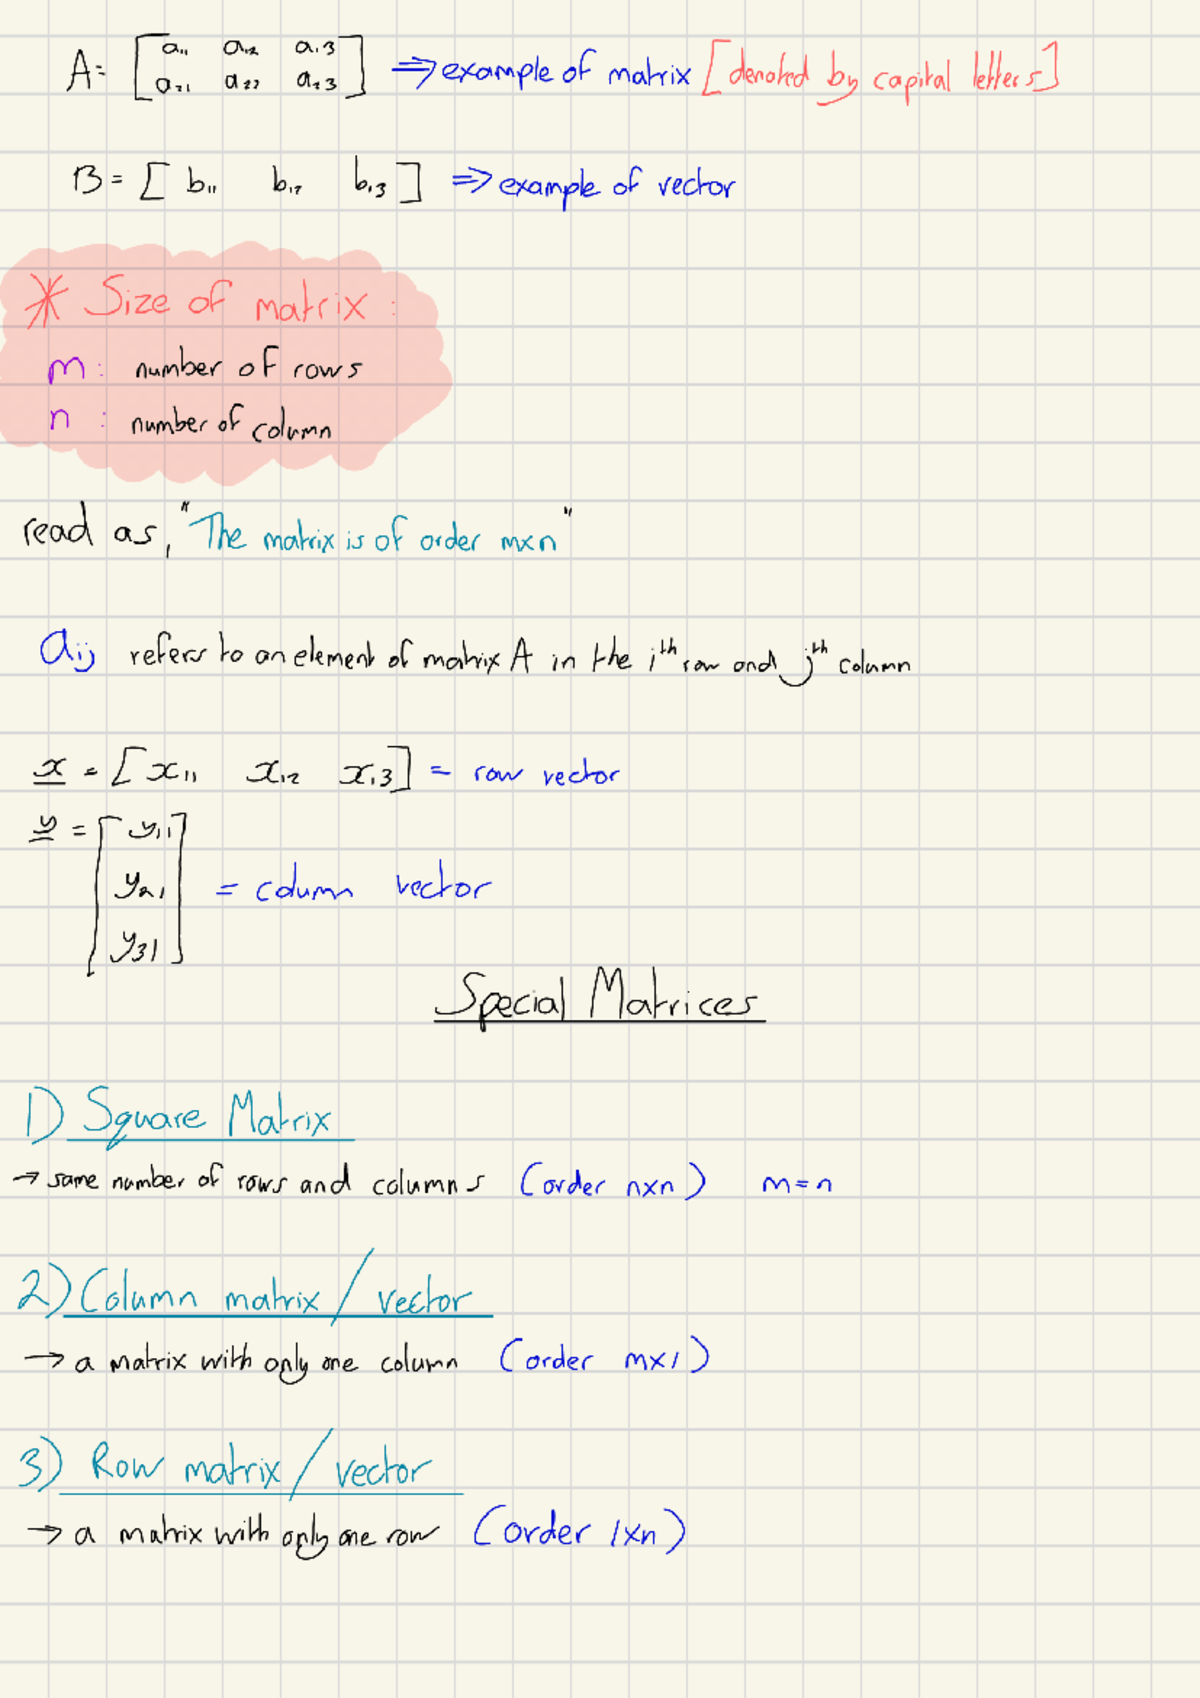 A = [a₁₁ a₁₂ a₁₃
a₂₁ a₂₂ a₂₃] ⇒ example of matrix [denoted by capital letters]
B = [b₁₁ b₁₂ b₁₃] ⇒ example of vector
* Size of matrix :
m : number of rows
n : number of column
read as, "The matrix is of order m×n"
aᵢⱼ refers to an element of matrix A in the iᵗʰ row and jᵗʰ column
x = [x₁₁ x₁₂ x₁₃] = row vector
y = [y₁₁
y₂₁ = column vector
y₃₁]
Special Matrices
1) Square Matrix
→ same number of rows and columns (order n×n) m=n
2) Column matrix / vector
→ a matrix with only one column (order m×1)
3) Row matrix / vector
→ a matrix with only one row (order 1×n)